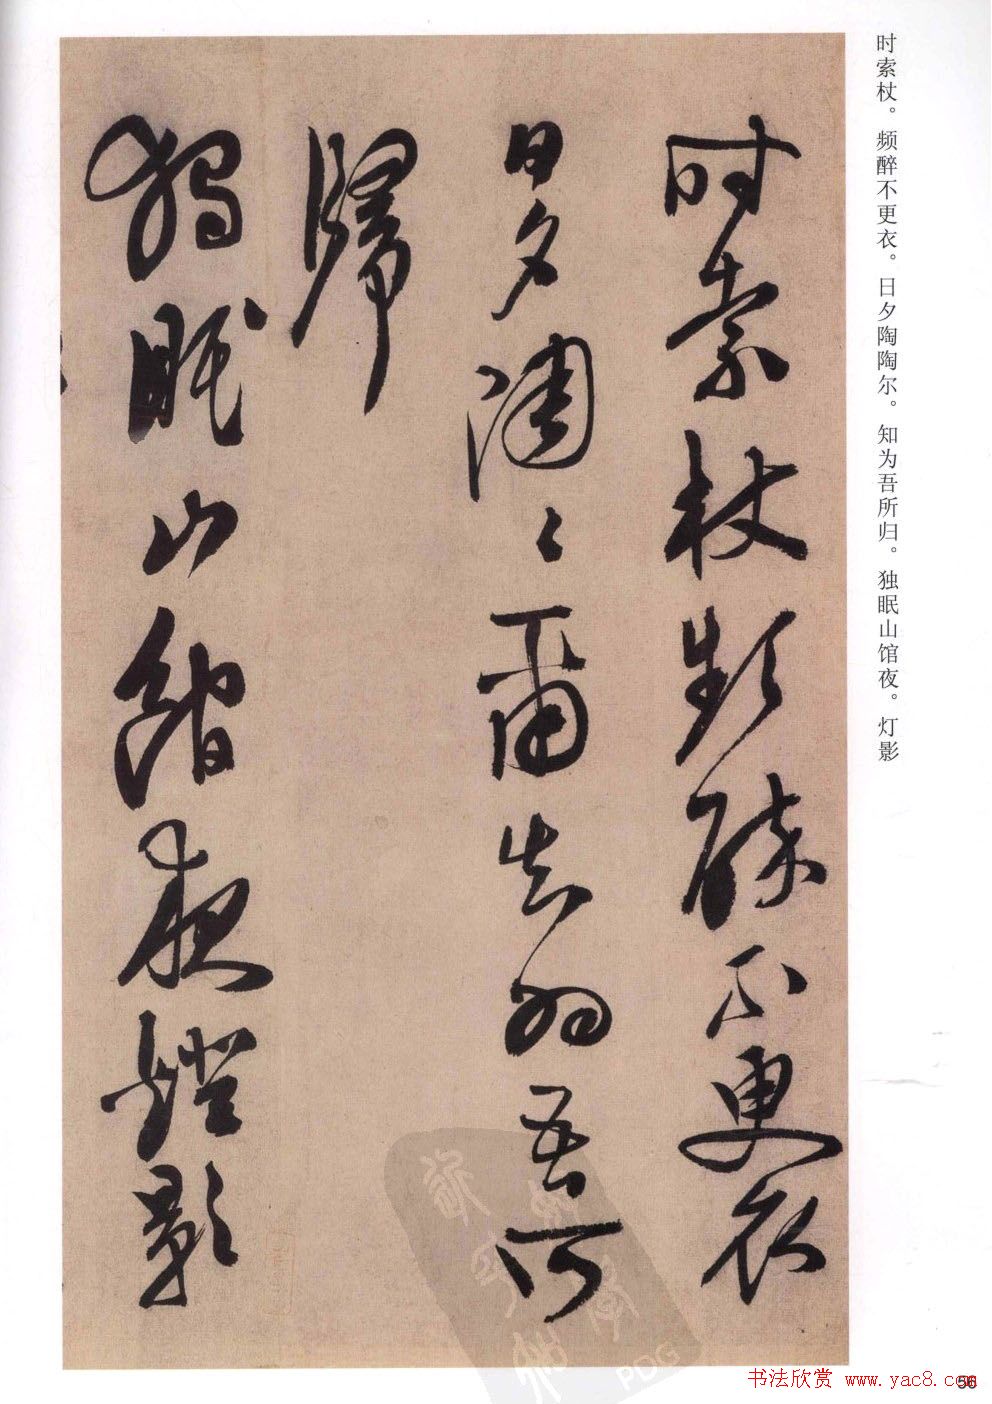 时索杖。频醉不更衣。日夕陶陶尔。知为吾所归。独眠山馆夜。灯影
时索杖頻醉不更衣
日夕陶〻爾知為吾所
歸
獨眠山館夜鐙影
PDG
书法欣赏 www.yac8.com
56